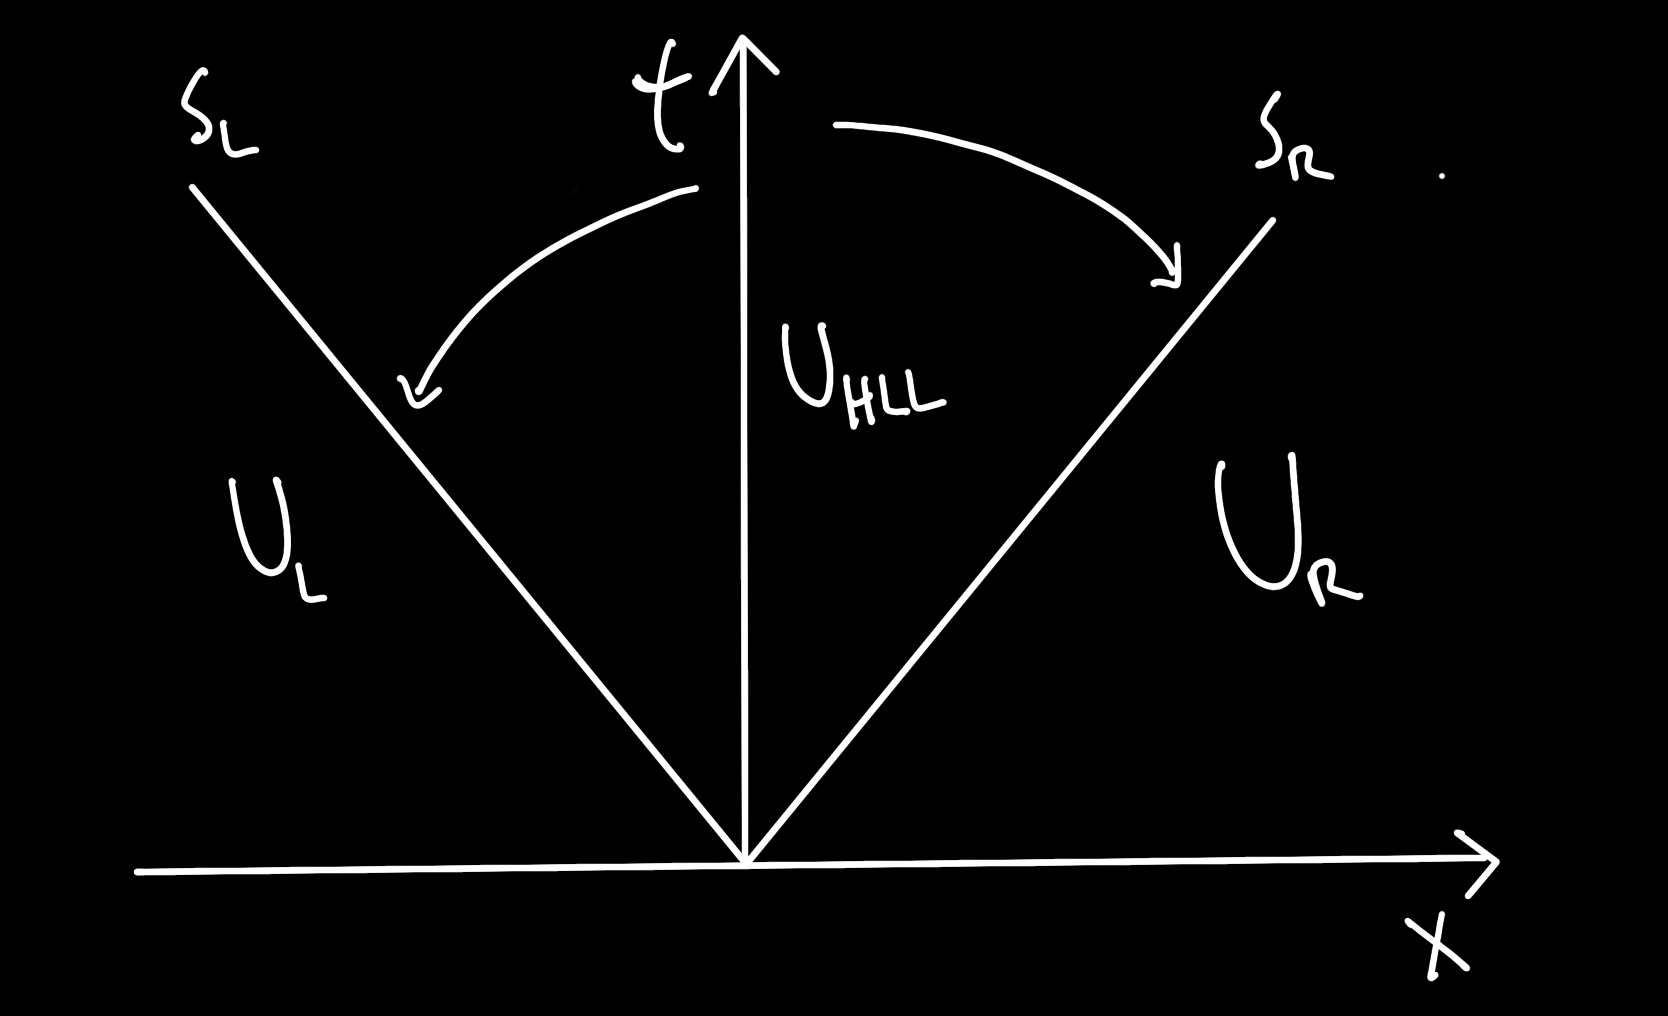 S_L
t
S_R
U_HLL
U_L
U_R
x